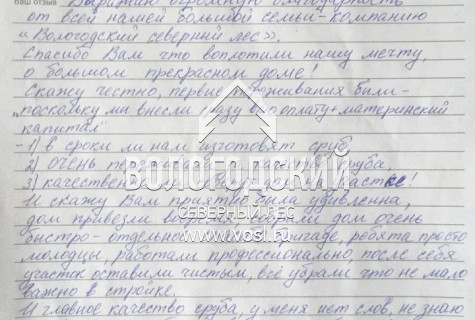 Ваш отзыв Выражаю огромную благодарность
от всей нашей большой семьи - компанию
«Вологодский северный лес».
Спасибо Вам что воплотили нашу мечту,
о большом прекрасном доме!
Скажу честно, первые переживания были -
поскольку мы внесли сразу оплату + материнский
капитал
- 1) в сроки ли нам изготовят сруб
2) очень пер
3) качествен
ВОЛОГОДСКИЙ
СЕВЕРНЫЙ ЛЕС
www.vosl.ru
И скажу Вам приятно была удивленна,
дом привезли дом очень
быстро - отдельно бригаде, ребята просто
молодцы, работали профессионально, после себя
участок оставили чистым, всё убрали что не мало
важно в стройке.
И главное качество сруба, у меня нет слов, не знаю